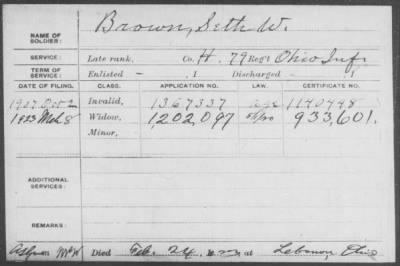 Brown, Seth W.
NAME OF SOLDIER:
SERVICE: Late rank, Co. H. 79 Reg't Ohio Inf.
TERM OF SERVICE: Enlisted - , 1 Discharged - , 1
DATE OF FILING. CLASS. APPLICATION NO. LAW. CERTIFICATE NO.
1907 Oct 2 Invalid, 1367337 age 1140448
1923 Mch 8 Widow, 1,202,097 933,601.
Minor,
ADDITIONAL SERVICES:
REMARKS:
Died Feb. 24, 1923, at Lebanon, Ohio